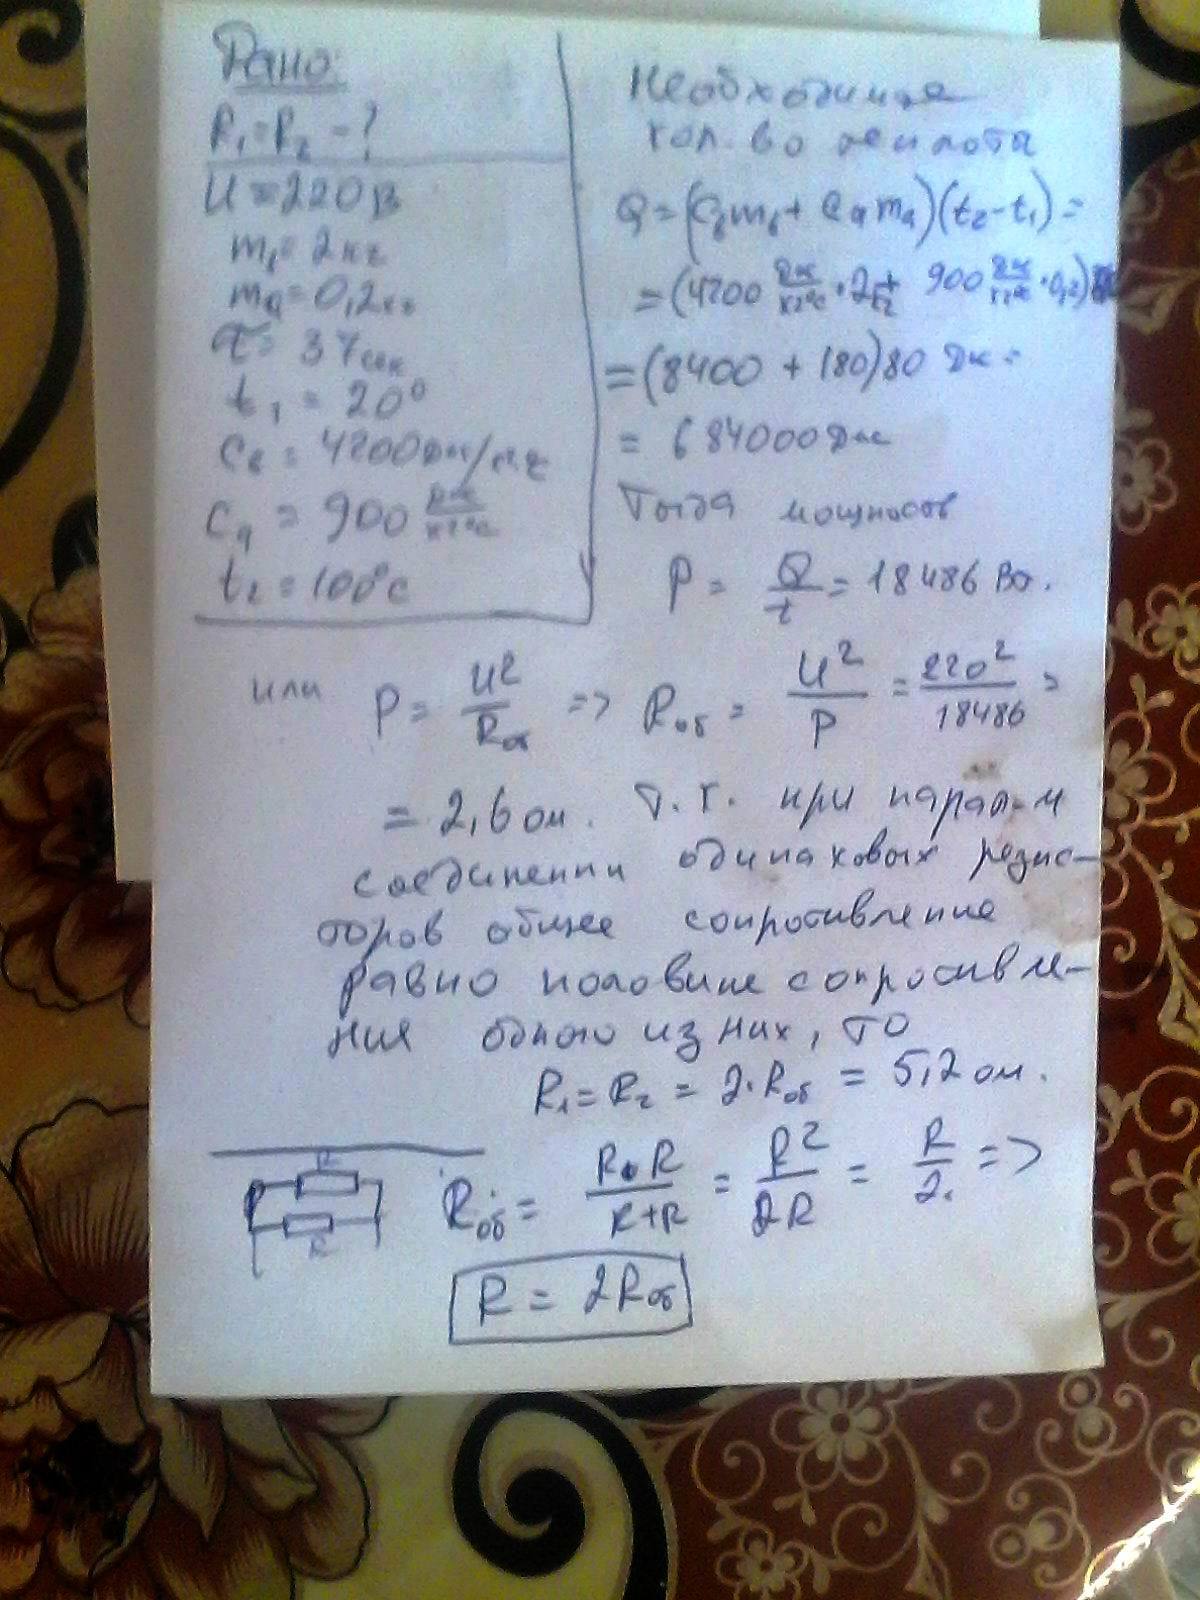 Дано:
R₁=R₂ - ?
U = 220 В
mв = 2 кг
mа = 0,2 кг
τ = 37 сек
t₁ = 20°
cв = 4200 Дж/кг°С
cа = 900 Дж/кг°С
t₂ = 100°С
Необходимое
кол-во теплоты
Q = (cвmв + cаmа)(t₂-t₁) =
= (4200 Дж/кг°С · 2кг + 900 Дж/кг°С · 0,2)
= (8400 + 180)80 Дж =
= 684000 Дж
Тогда мощность
P = Q/t = 18486 Вт.
или P = U²/Rоб => Rоб = U²/P = 220²/18486 =
= 2,6 ом. Т.к. при парал-м
соединении одинаковых резис-
торов общее сопротивление
равно половине сопротивле-
ния одного из них, то
R₁ = R₂ = 2·Rоб = 5,2 ом.
R
R
Rоб = R·R/R+R = R²/2R = R/2 =>
R = 2Rоб